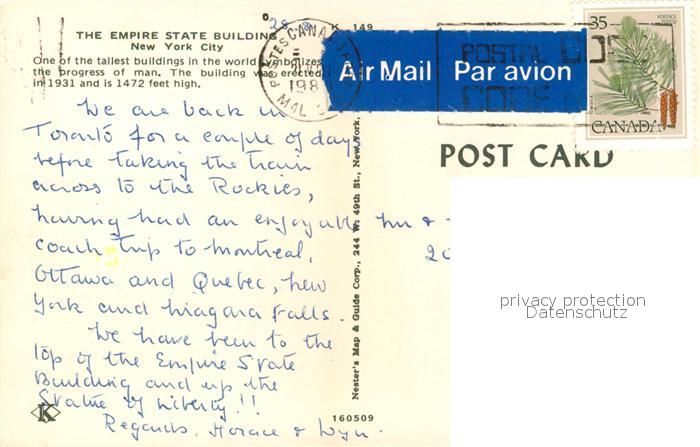 THE EMPIRE STATE BUILDING
New York City
One of the tallest buildings in the world symbolizes
the progress of man. The building was erected
in 1931 and is 1472 feet high.
We are back in
Toronto for a couple of days
before taking the train
across to the Rockies,
having had an enjoyable
coach trip to Montreal,
Ottawa and Quebec, New
York and Niagara Falls.
We have been to the
top of the Empire State
Building and up the
Statue of Liberty!!
Regards, Horace & Wyn.
K
160509
Nester's Map & Guide Corp., 244 W. 49th St., New York,
149
POSTES CANADA
Air Mail Par avion
POSTAL CODE
35
POSTES POSTAGE
CANADA
POST CARD
privacy protection
Datenschutz